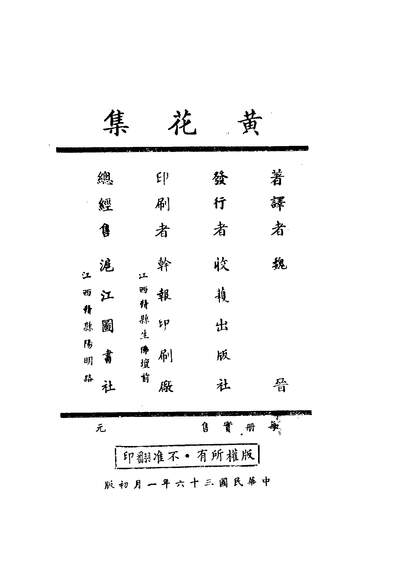 黃花集
著譯者 魏晉
發行者 收穫出版社
印刷者 幹報印刷廠
江西贛縣生佛壇前
總經售 滬江圖書社
江西贛縣陽明路
每册實售 元
版權所有·不准翻印
中華民國三十六年一月初版